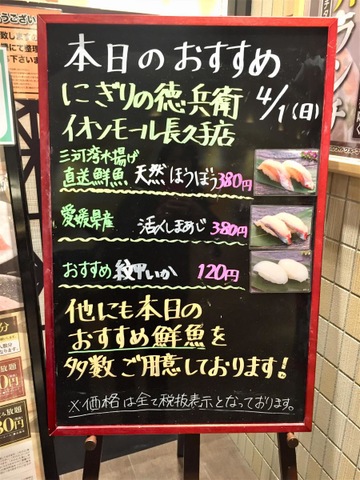 本日のおすすめ
にぎりの徳兵衛
4/1(日)
イオンモール長久手店
三河湾水揚げ
直送鮮魚 天然ほうぼう 380円
愛媛県産 活〆しまあじ 380円
おすすめ 紋甲いか 120円
他にも本日の
おすすめ鮮魚を
多数ご用意しております!
※価格は全て税抜表示となっております。
ランチ